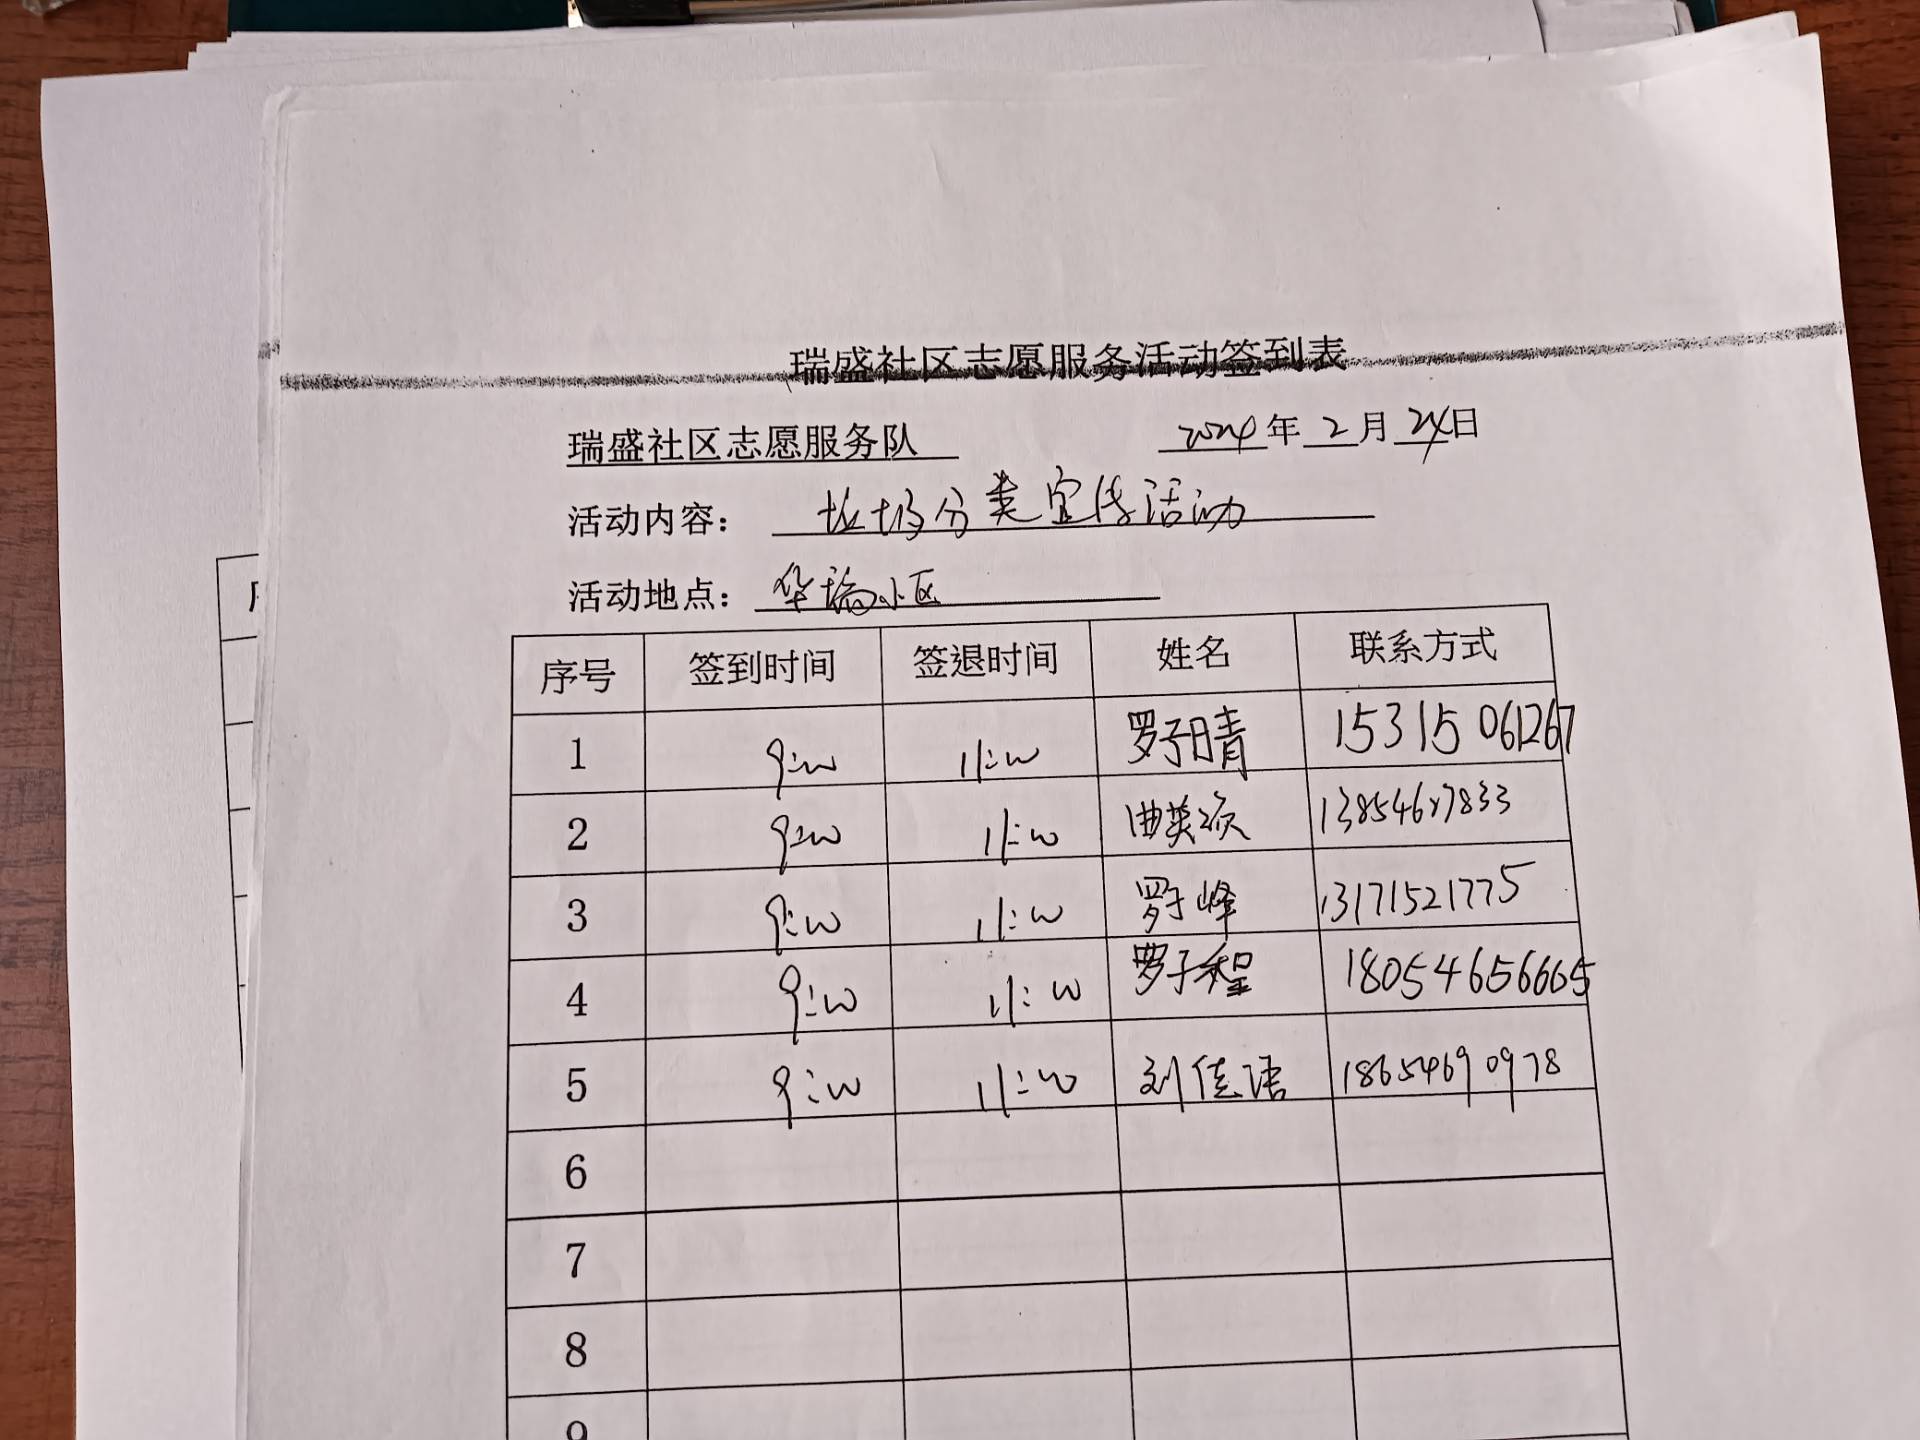 瑞盛社区志愿服务活动签到表
瑞盛社区志愿服务队 2024年2月24日
活动内容: 垃圾分类宣传活动
活动地点: 华瑞小区
序号 签到时间 签退时间 姓名 联系方式
1 9:00 11:00 罗子晴 15315061267
2 9:00 11:00 曲英 
3 9:00 11:00 罗于峰 13171521775
4 9:00 11:00 罗子程 18054656665
5 9:00 11:00 刘佳语 18654690978
6
7
8
9